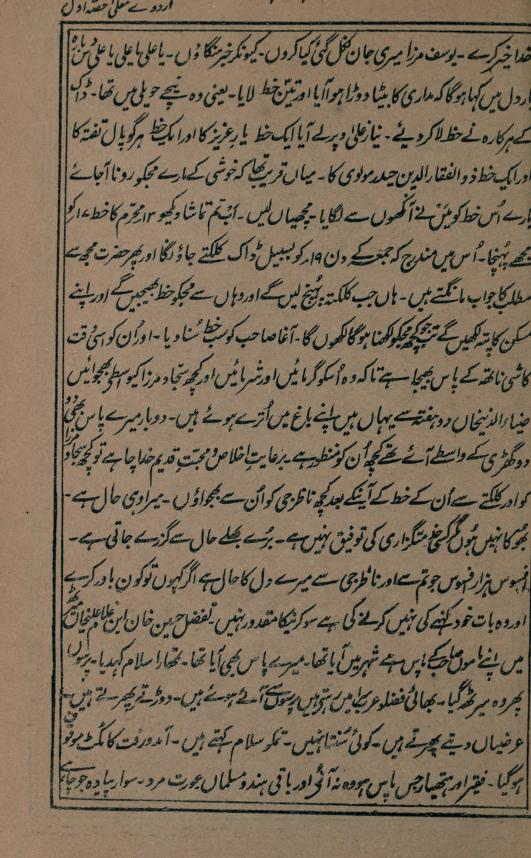 اردوے معلیٰ حصہ اول
خدا خیر کرے۔ یوسف مرزا میری جان نکل گئی کیا کروں۔ کیونکر خبر منگاؤں۔ یا علی یا علی یا علی دس بارہ
بار دل میں کہا ہوگا کہ مداری کا بیٹا دوڑا ہوا آیا اور تین خط لایا۔ یعنی وہ نیچے حویلی میں تھا۔ ڈاک
کے ہرکارہ نے خط لا کر دیئے۔ نیاز علی اوپر لے آیا ایک خط یار عزیز کا اور ایک خط ہرگوپال تفتہ کا
اور ایک خط ذوالفقار الدین حیدر مولوی کا۔ میاں قریب تھا کہ خوشی کے مارے مجکو رونا آجائے
بارے اُس خط کو میں نے آنکھوں سے لگایا۔ مچھیاں لیں۔ اب تم تماشا دیکھو ۱۳ محرم کا خط ۱۷ کو
مجھے پہنچا۔ اُس میں مندرج کہ جمعہ کے دن ۱۹ کو بسبیل ڈاک کلکتے جاؤنگا اور پھر حضرت مجھ سے
مطلب کا جواب مانگتے ہیں۔ ہاں جب کلکتہ پہنچ لیں گے اور وہاں سے مجکو خط بھیجیں گے اور اپنے
مسکن کا پتہ لکھیں گے تب جو کچھ مجکو لکھنا ہوگا لکھوں گا۔ آغا صاحب کو سب خط سُنا دیا۔ اور اُن کو اسی وقت
کاشی ناتھ کے پاس بھیجا ہے تاکہ وہ اُسکو گرمائیں اور شرمائیں اور کچھ سجاد مرزا کیواسطے بھجوائیں
ضیاء الدینخاں دو ہفتہ سے یہاں ہیں اپنے باغ میں اُترے ہوئے ہیں۔ دوبار میرے پاس بھی دو
دو گھڑی کے واسطے آئے تھے کچھ اُن کو منظور ہے برعایت اخلاص و محبت قدیم خدا چاہے تو کچھ سجاد مرزا
کو اور کلکتے سے اُن کے خط کے آنیکے بعد کچھ ناظر جی کو اُن سے بھجواؤں۔ میرا وہی حال ہے۔
بھوکا نہیں ہوں مگر کسی خدمتگزاری کی توفیق نہیں ہے۔ بُرے بھلے حال سے گزرے جاتی ہے۔
افسوس ہزار افسوس جو تم سے اور ناظر جی سے میرے دل کا حال ہے اگر کہوں تو کون باور کرے
اور وہ بات خود کہنے کی نہیں کرنے کی ہے سو کرنیکا مقدور نہیں۔ تفضل حسین خان ابن غلام علیخاں میرٹھ
میں اپنے ماموں صاحب کے پاس ہے شہر میں آیا تھا۔ میرے پاس بھی آیا تھا۔ تمھارا سلام کہدیا۔ پرسوں
پھر وہ میرٹھ گیا۔ بھائی فضلو عرب سرا میں ہیں پرسوں سے آئے ہوئے ہیں۔ دوڑتے پھرتے ہیں۔
عرضیاں دیتے پھرتے ہیں۔ کوئی سُنتا نہیں۔ تمکو سلام کہتے ہیں۔ آمد و رفت کا ٹکٹ موقوف
ہو گیا۔ فقیر اور ہتھیار جس پاس ہو وہ نہ آئے اور باقی ہندو مسلمان عورت مرد۔ سوار پیادہ جو چاہے